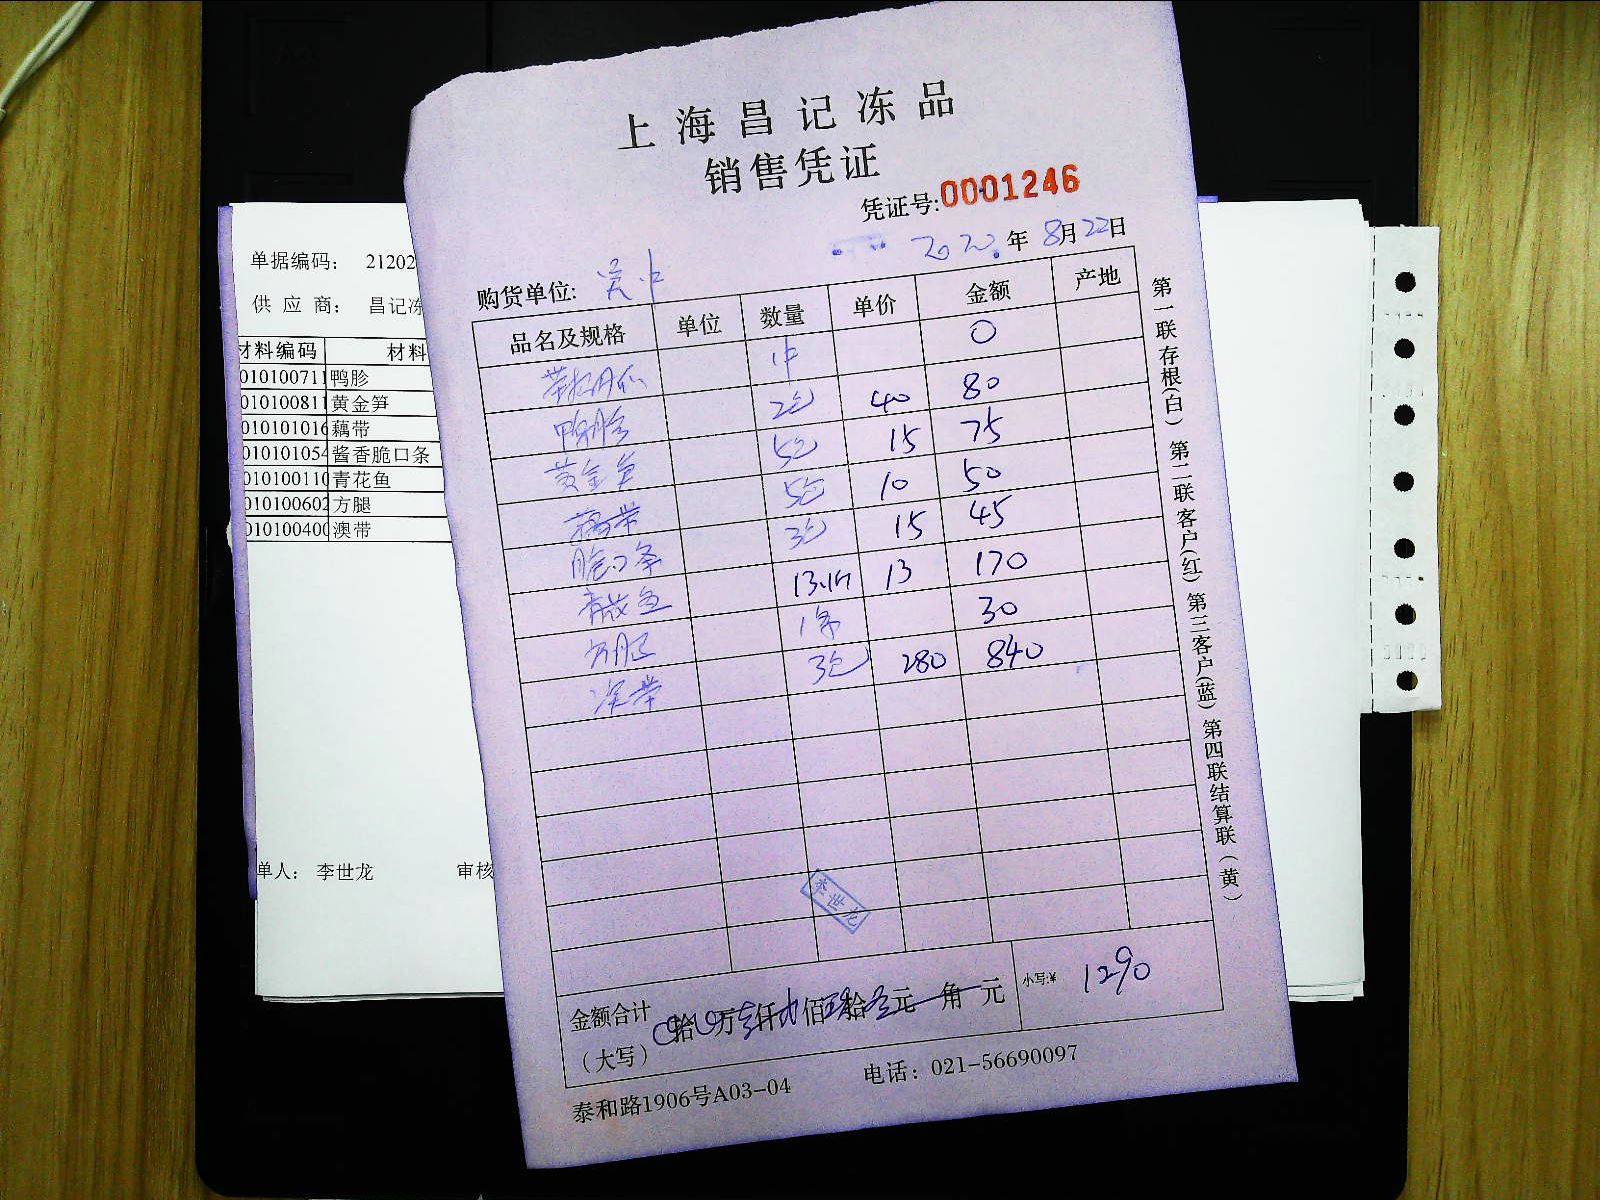 上海昌记冻品
销售凭证
凭证号:0001246
2022年8月22日
购货单位: 吴中
品名及规格 单位 数量 单价 金额 产地
1件 0
鸭胗 2包 40 80
黄金笋 5包 15 75
藕带 5包 10 50
脆口条 3包 15 45
青花鱼 13.1斤 13 170
方腿 1条 30
澳带 3包 280 840
李世龙
金额合计
(大写)
拾 万 仟 佰 拾 元 角 元
小写:¥ 1290
泰和路1906号A03-04 电话: 021-56690097
第一联存根(白) 第二联客户(红) 第三客户(蓝) 第四联结算联(黄)
单据编码: 21202
供 应 商: 昌记冻
材料编码 材料
010100711 鸭胗
010100811 黄金笋
010101016 藕带
010101054 酱香脆口条
010100110 青花鱼
010100602 方腿
010100400 澳带
单人: 李世龙 审核